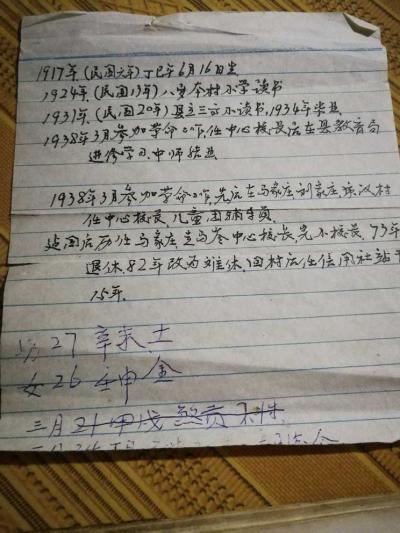 1917年(民国元年)丁巳年6月16日生
1924年.(民国13年)八岁本村小学读书
1931年.(民国20年)县立三高小读书,1934年毕业
1938年3月参加革命工作,任中心校长.后在县教育局
进修学习.中师结业
1938年3月参加革命工作,先后在马家庄.刘家庄.张汉村
任中心校长.儿童团辅导员
建国后历任马家庄走马岺中心校长,完小校长.73年
退休.82年改为离休.回村后任信用社站
15年.
男27 辛未 土
女26 壬申 金
三月21 甲戌